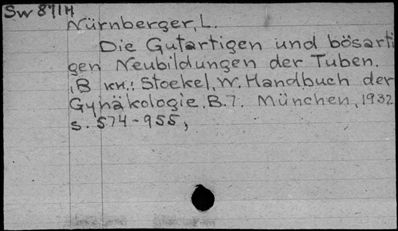 Sw 871H
Nürnberger, L.
Die Gutartigen und bösarti
gen Neubildungen der Tuben.
,В кн.: Stoekel, W. Handbuch der
Gynäkologie. B.7. München, 1932
s. 574-955,